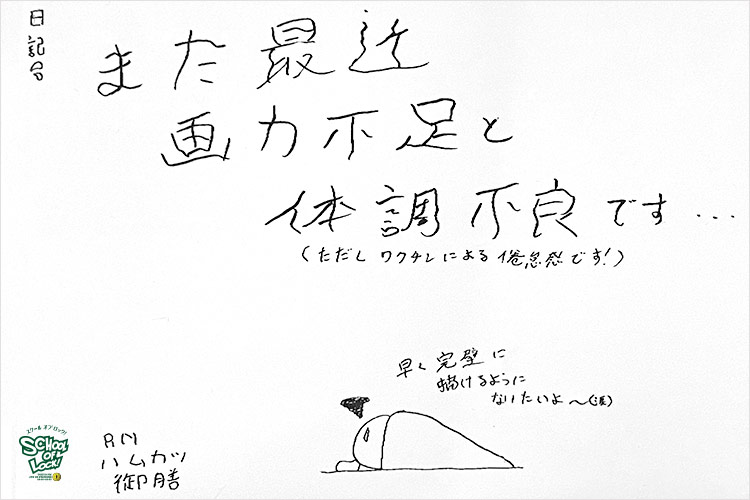 日記名
また最近
画力不足と
体調不良です…
(ただし ワクチンによる倦怠感です!)
早く完璧に
描けるように
なりたいよ〜(涙)
RN
ハムカツ
御膳
スクール オブ ロック!
SCHOOL
OF
LOCK!